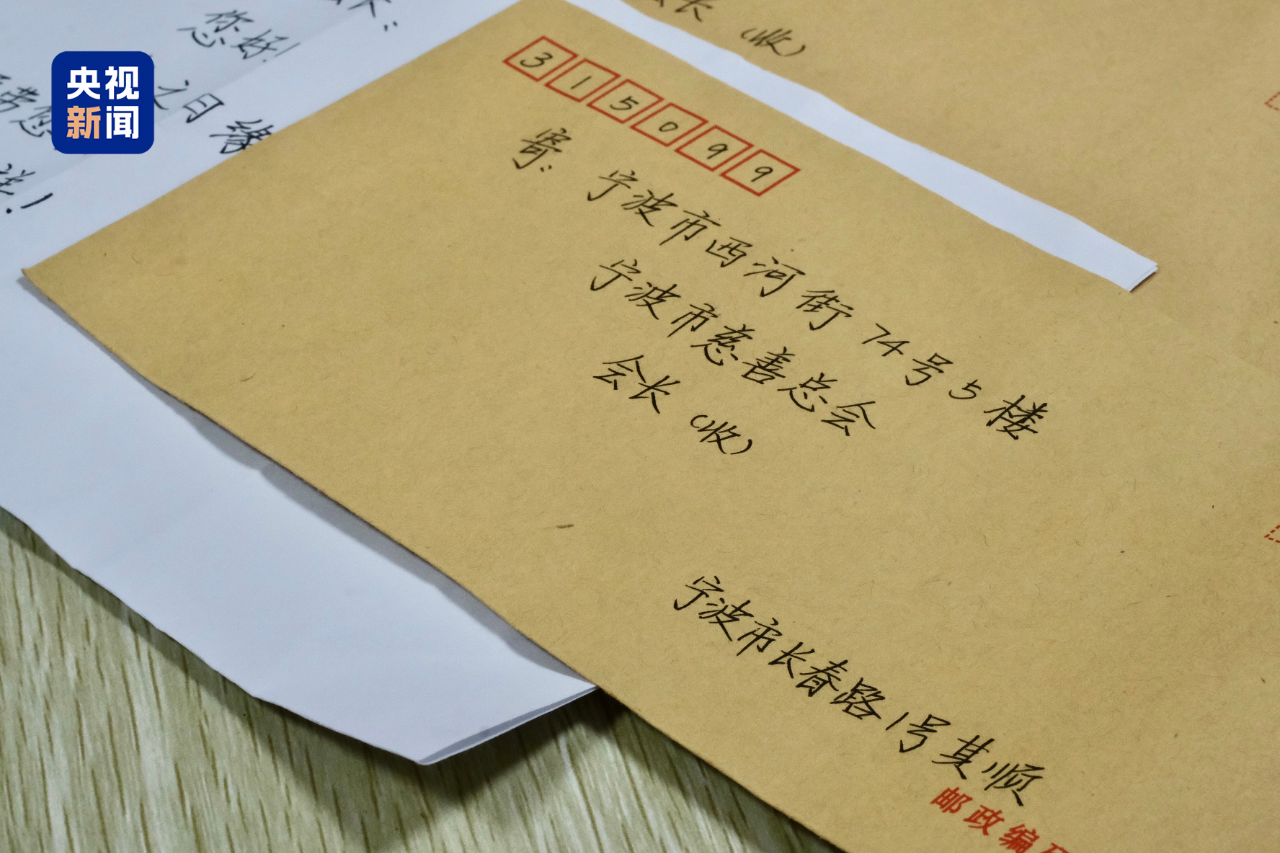 央视
新闻
您好!
之日缘
会长(收)
315099
寄:宁波市西河街74号5楼
宁波市慈善总会
会长(收)
宁波市长春路1号其顺
邮政编